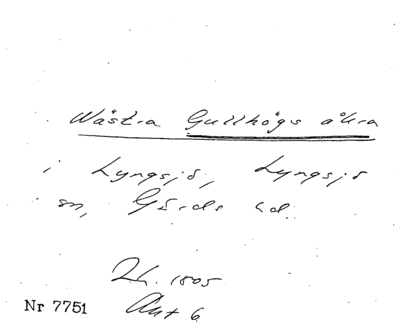 Wästra Gullhögs åkra
i Lyngsjö, Lyngsjö
sn, Gärds hd.
Lh. 1805
Nr 7751 Akt 6